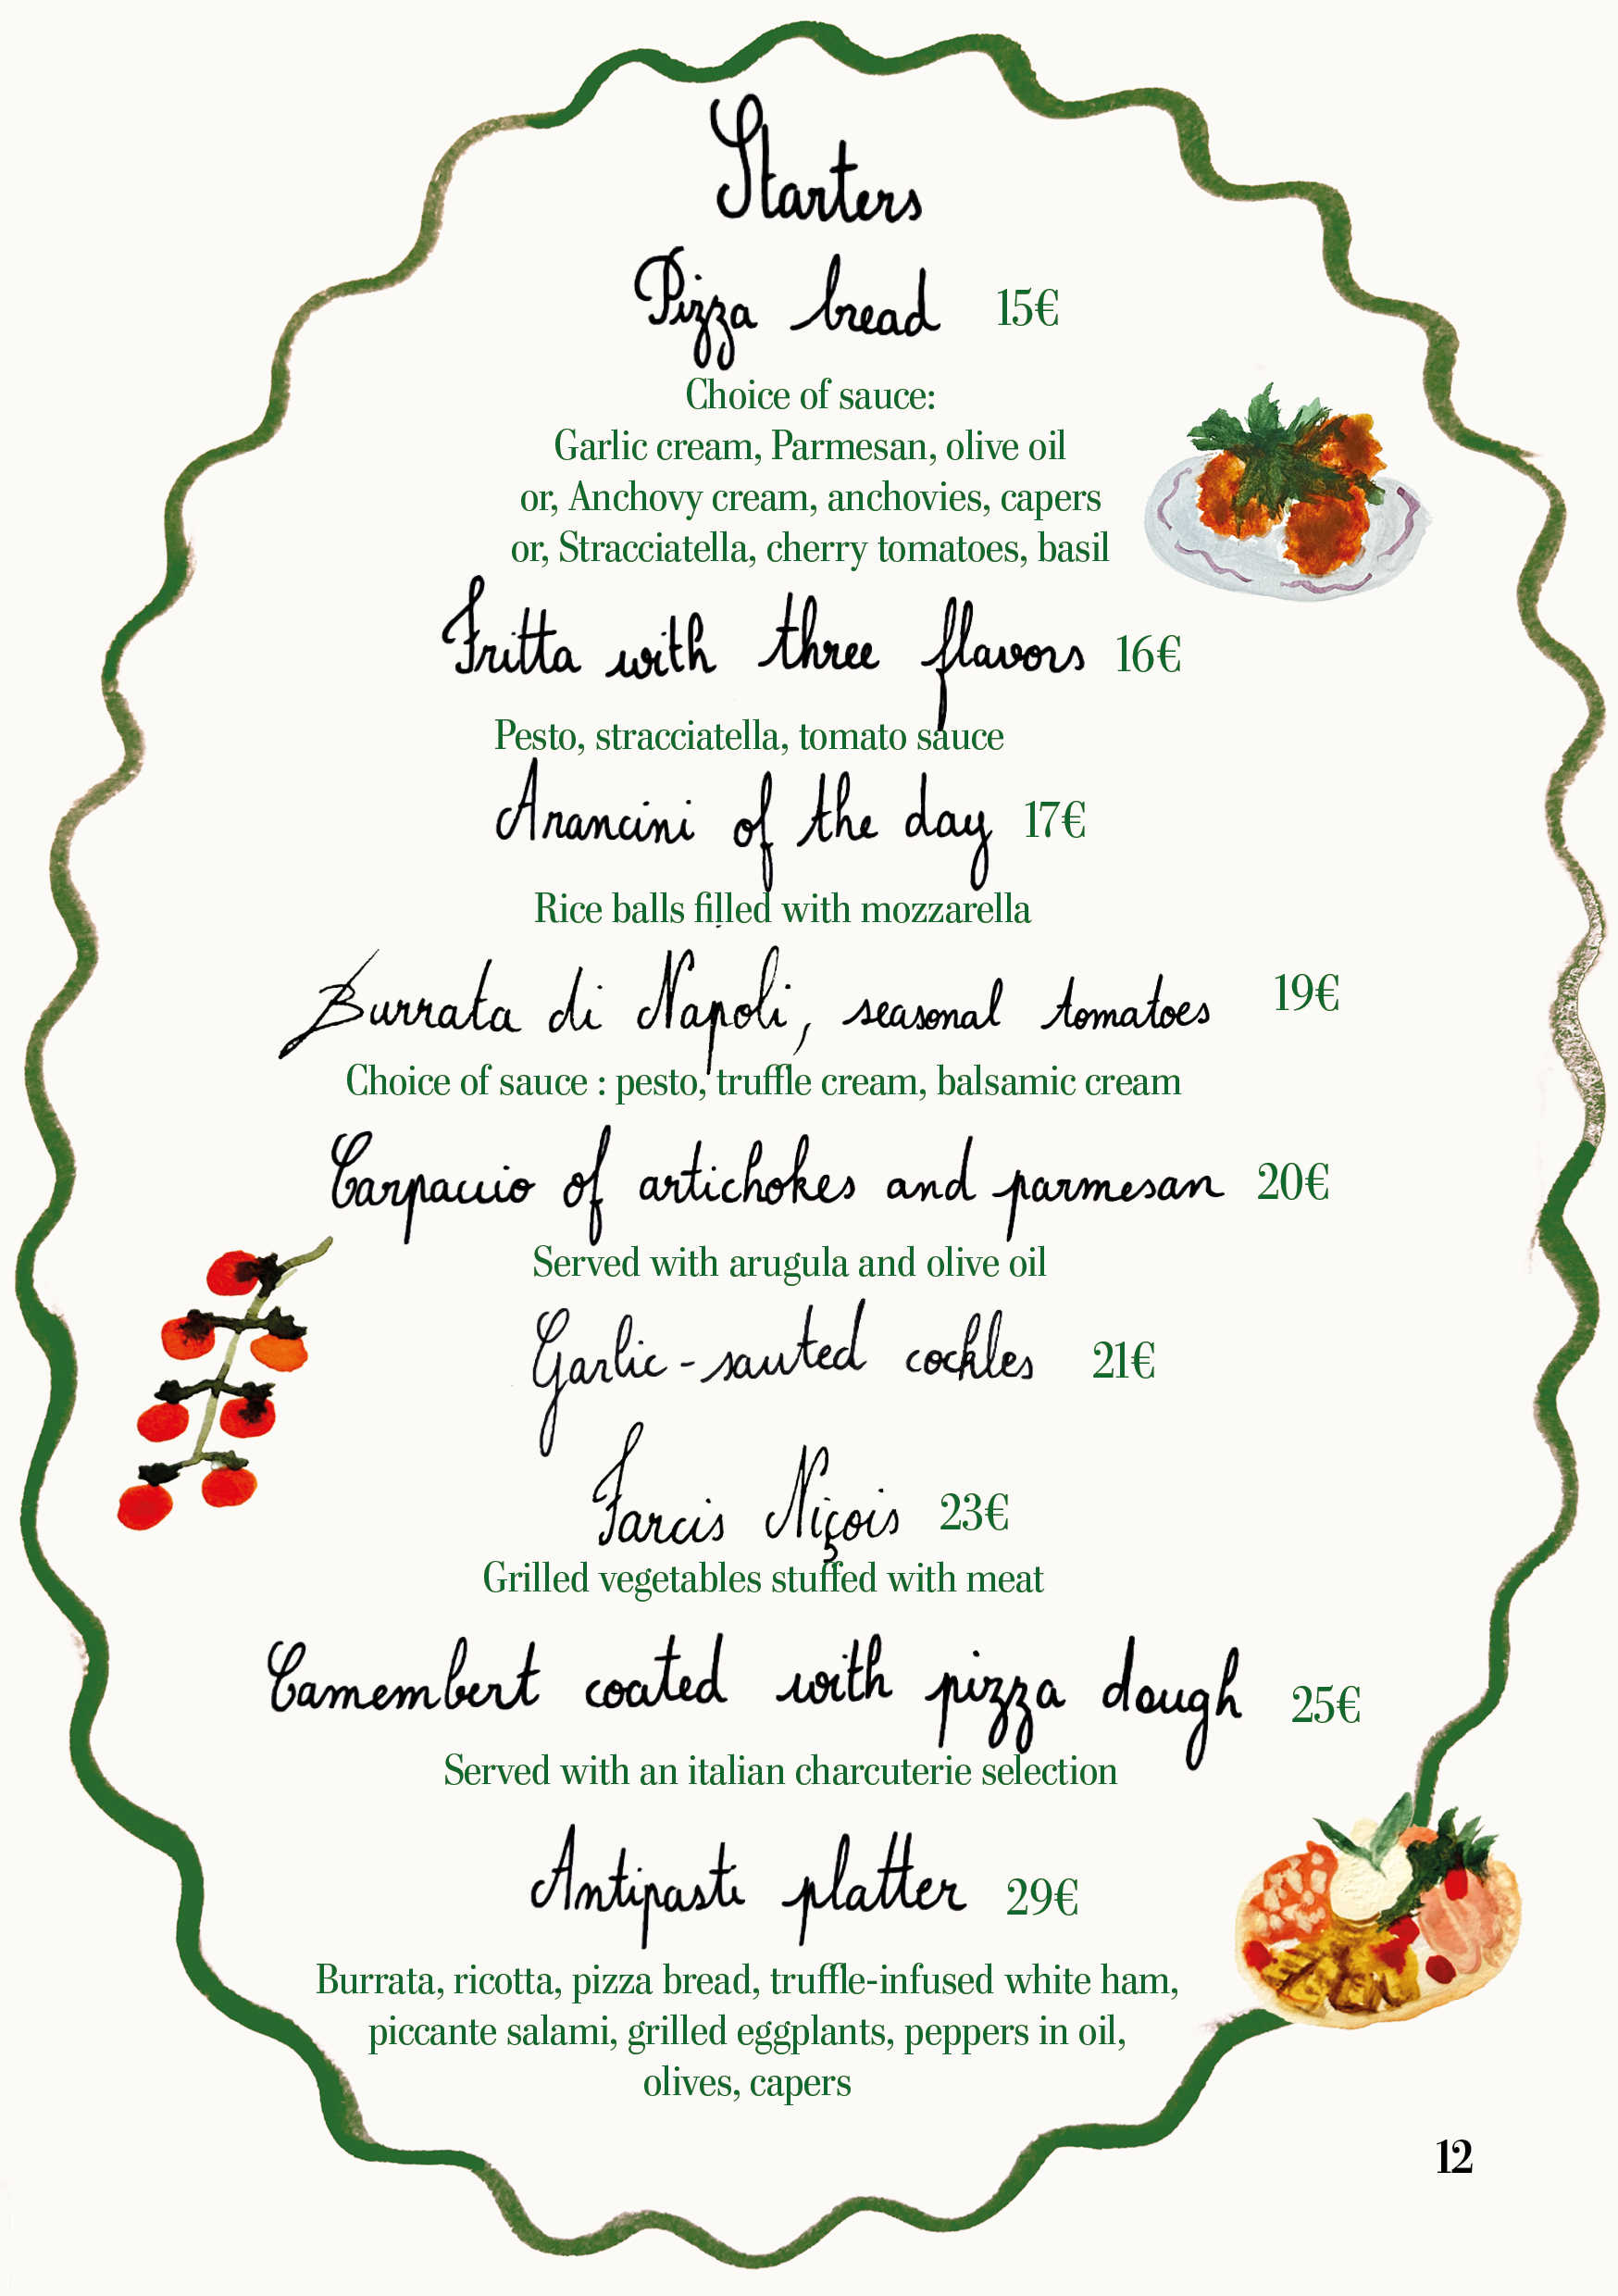 Starters
Pizza bread 15€
Choice of sauce:
Garlic cream, Parmesan, olive oil
or, Anchovy cream, anchovies, capers
or, Stracciatella, cherry tomatoes, basil
Fritta with three flavors 16€
Pesto, stracciatella, tomato sauce
Arancini of the day 17€
Rice balls filled with mozzarella
Burrata di Napoli, seasonal tomatoes 19€
Choice of sauce : pesto, truffle cream, balsamic cream
Carpaccio of artichokes and parmesan 20€
Served with arugula and olive oil
Garlic-sauted cockles 21€
Farcis Niçois 23€
Grilled vegetables stuffed with meat
Camembert coated with pizza dough 25€
Served with an italian charcuterie selection
Antipasti platter 29€
Burrata, ricotta, pizza bread, truffle-infused white ham,
piccante salami, grilled eggplants, peppers in oil,
olives, capers
12